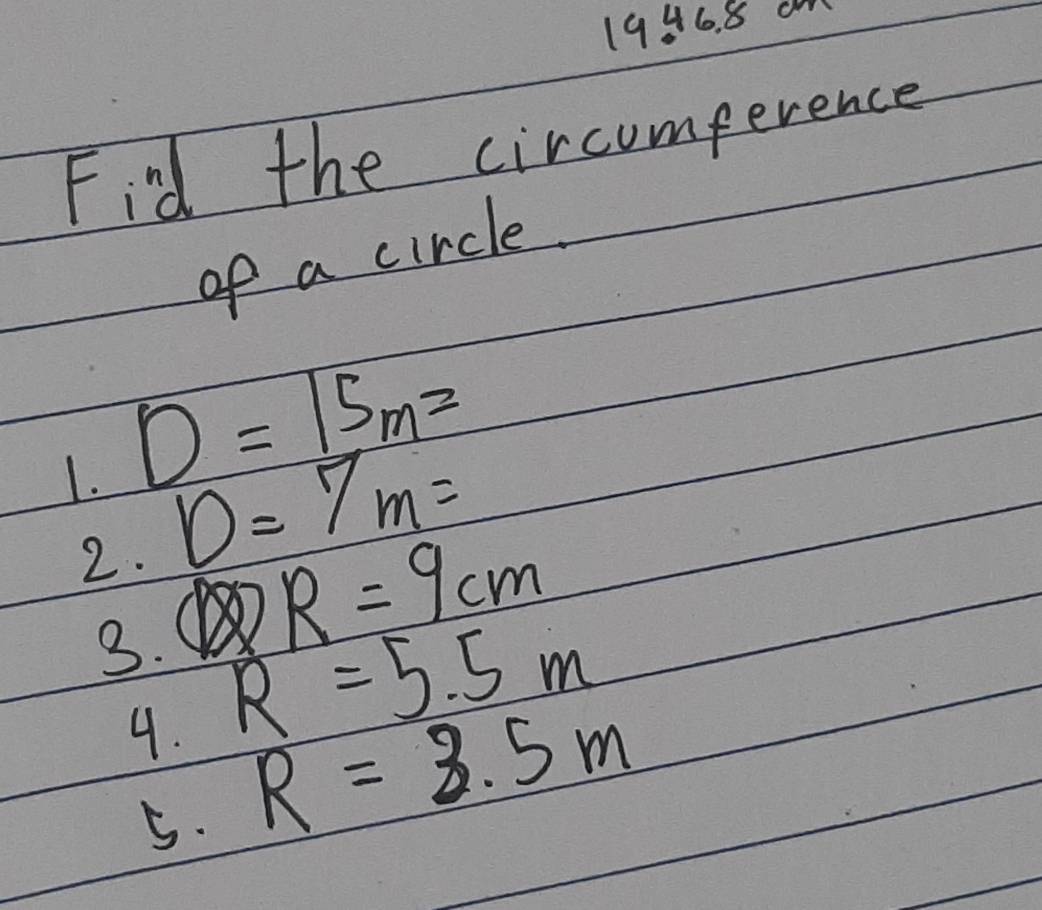 19.46.8 cm
Find the circumference
of a circle.
1. D = 15m=
2. D= 7m=
3. R = 9cm
4. R = 5.5 m
5. R = 3.5 m